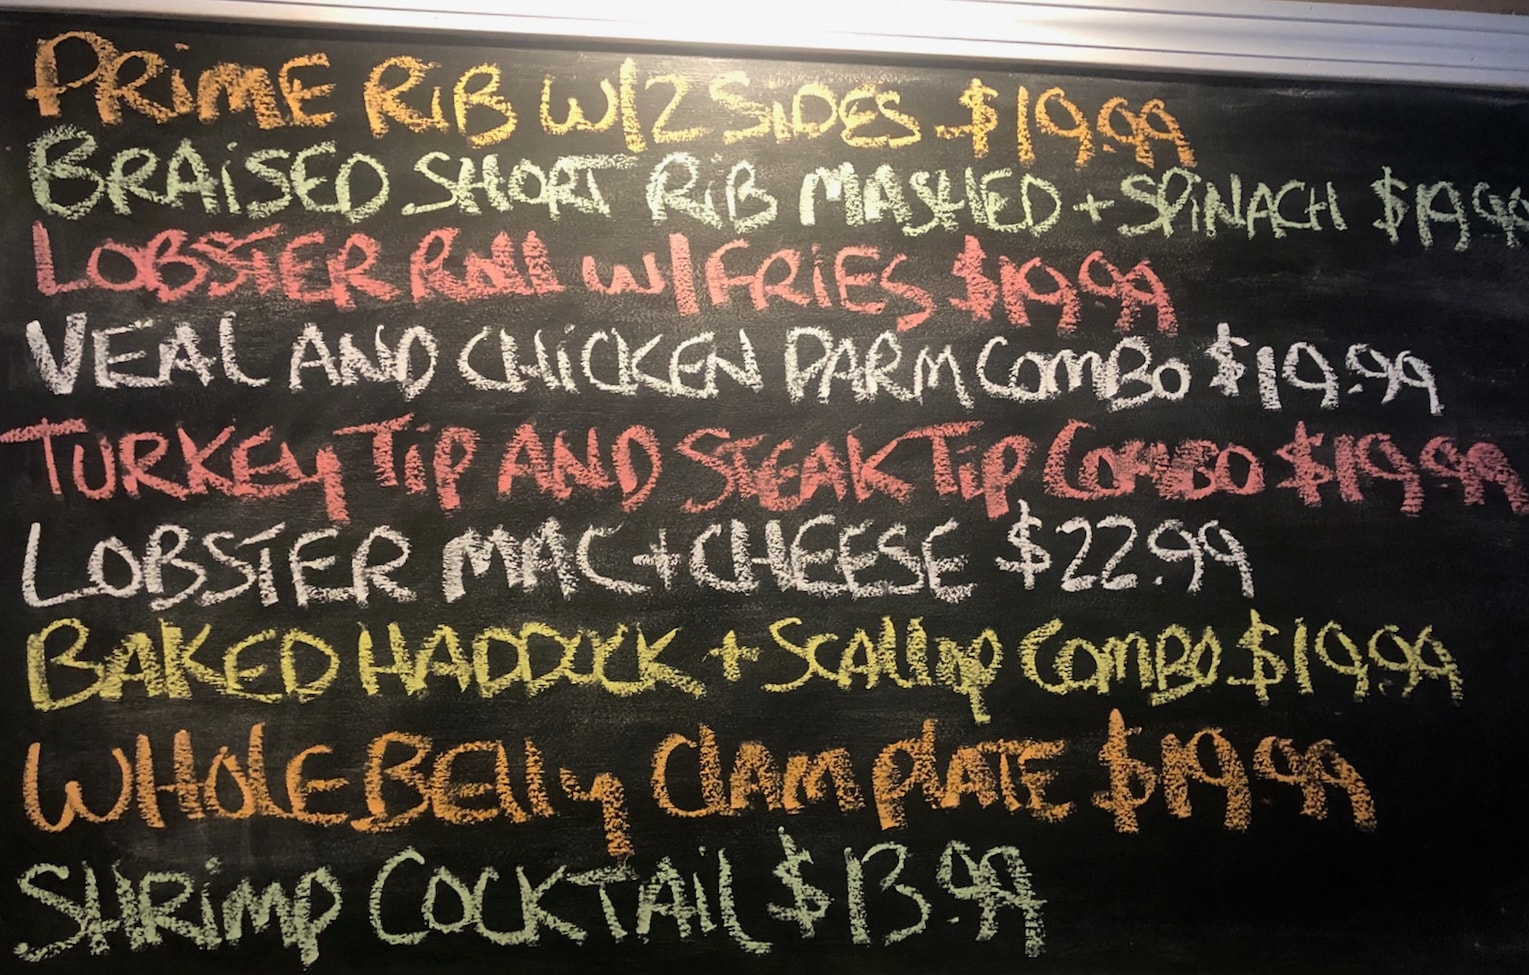 PRiME RiB W/2 SiDES $19.99
BRAiSED SHORT RiB MASHED + SPiNACH $19.99
LOBSTER Roll W/FRiES $19.99
VEAL AND CHiCKEN PARM COMBO $19.99
TURKEY TiP AND STEAK TiP COMBO $19.99
LOBSTER MAC + CHEESE $22.99
BAKED HADDOCK + SCAllop COMBO $19.99
WHOLE BElly Clam plATE $19.99
SHRimp COCKTAiL $13.99